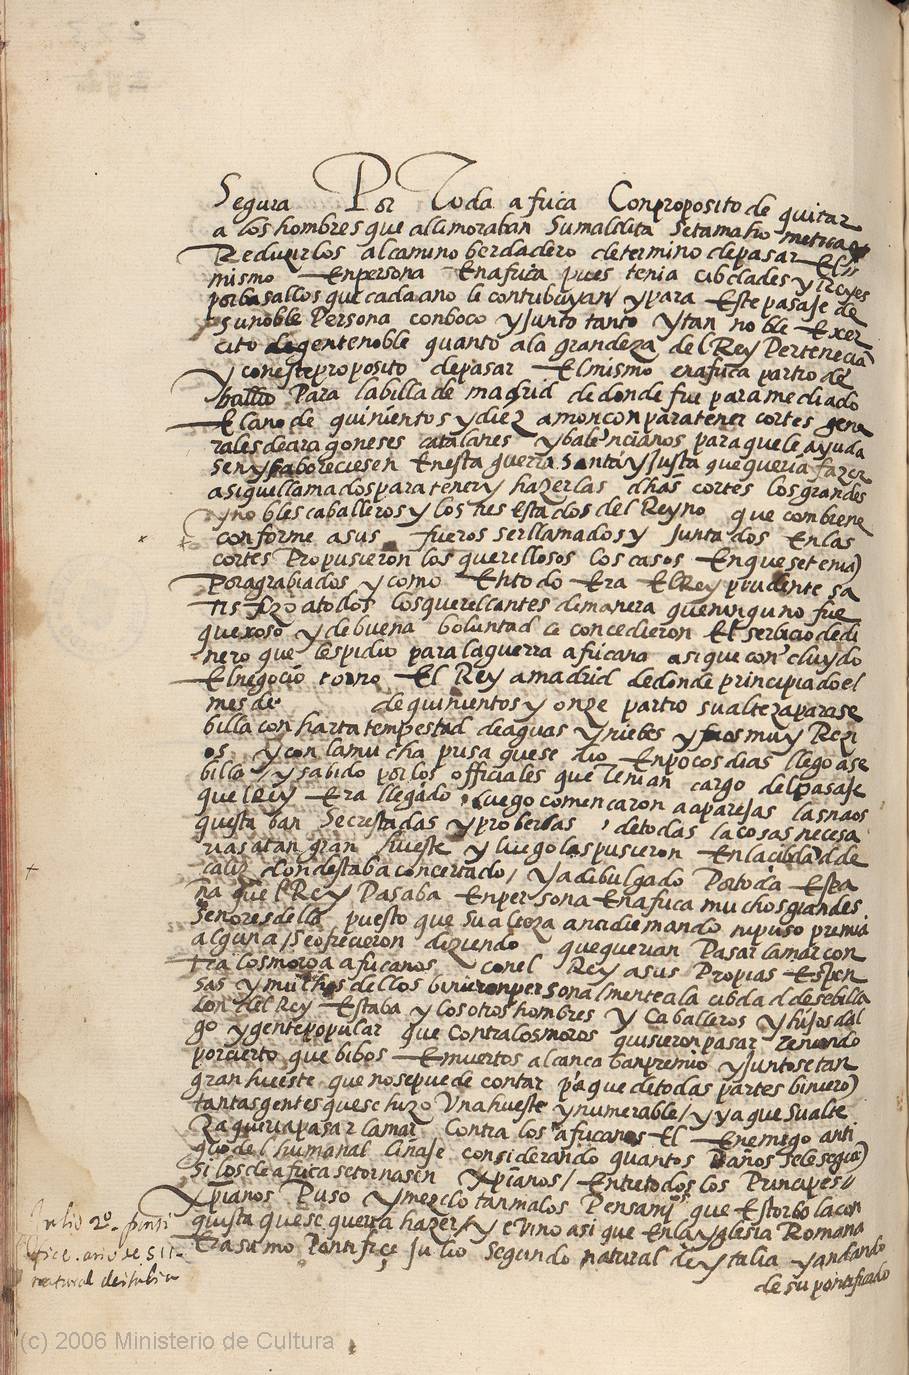 Segura Por Toda africa Con proposito de quitar
a los hombres que alli moraban Su maldita Seta mahometica y
Reduzirlos al camino berdadero determino de pasar El
mismo En persona En africa pues tenia cibdades y Reyes
por basallos que cada ano le contribuyan y para Este pasaje de
su noble Persona conboco y Junto tanto y tan noble Exer
cito de gente noble quanto a la grandeza del Rey Pertenecia
y con este proposito de pasar El mismo en africa partio de
Para la billa de madrid de donde fue para mediado
El ano de quinientos y diez a monçon para tener cortes gene
rales de aragoneses catalanes y balencianos para que le ayuda
sen y faboreciesen En esta guerra Santa y Justa que queria fazer
asi que llamados para tener y hazer las dhas cortes los grandes
y nobles caballeros y los tres Estados del Reyno que combiene
conforme a sus fueros ser llamados y Juntados En las
cortes Propusieron los querellosos los casos En que se tenian
Por agrabiados y como En todo Era El Rey prudente sa
tisfizo a todos los querellantes de manera que ninguno fue
quexoso y de buena boluntad le concedieron El serbicio de di
nero que les pidio para la guerra africana asi que concluydo
El negocio torno El Rey a madrid de donde principiado el
mes de de quinientos y onze partio su alteza para se
billa con harta tempestad de aguas y niebes y frios muy Rezi
os y con la mucha prisa que se dio En pocos dias llego a se
billa y sabido por los officiales que Tenian cargo del pasaje
que el Rey Era llegado luego comencaron a aparejar las naos
que estaban Secrestadas y proberlas de todas las cosas necesa
rias a tan gran hueste y luego las pusieron En la cibdad de
caliz donde estaba concertado / y a dibulgado Por toda Espa
na que el Rey Pasaba En persona En africa muchos grandes
Senores della puesto que Su alteza a nadie mando ni puso premia
alguna / Se ofrecieron diziendo que querian Pasar la mar con
tra los moros africanos con el Rey a sus Propias Espen
sas y muchos dellos binieron personalmente a la cibdad de sebilla
don del Rey Estaba y los otros hombres y Caballeros y hijos dal
go y gente popular que Contra los moros quisieron pasar Teniendo
por cierto que bibos E muertos alcancaban premio y Juntose tan
gran hueste que no se puede contar pa que de todas partes binieron
tantas gentes que se hizo Vna hueste ynumerable / y ya que Su alte
za queria pasar la mar Contra los africanos El Enemigo anti
guo del humanal linaje considerando quantos Daños se le seguian
Si los de africa se tornasen Xpianos / Entre todos los Principes
Xpianos Puso y mezclo tan malos Pensamios que Estorbo la con
quista que se queria hazer / y e vino asi que En la yglesia Romana
Era sumo Pontifiçe Julio Segundo natural de ytalia y andando
de su pontificado
Julio 2º. ponti
fice. año de 511.
natural de italia
(c) 2006 Ministerio de Cultura